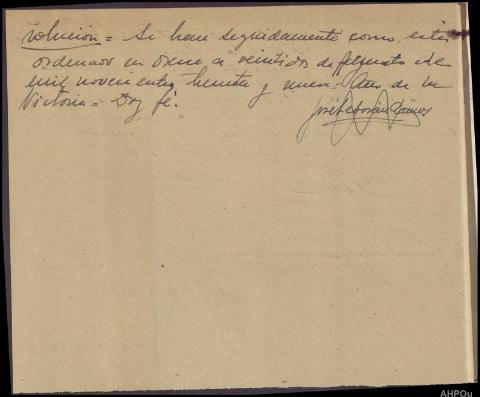 Se hace seguidamente como está
ordenado en Orense a veintidos de de
mil novecientos treinta y nueve. Año de la
Victoria = Doy fé.
José Ramos
AHPOu